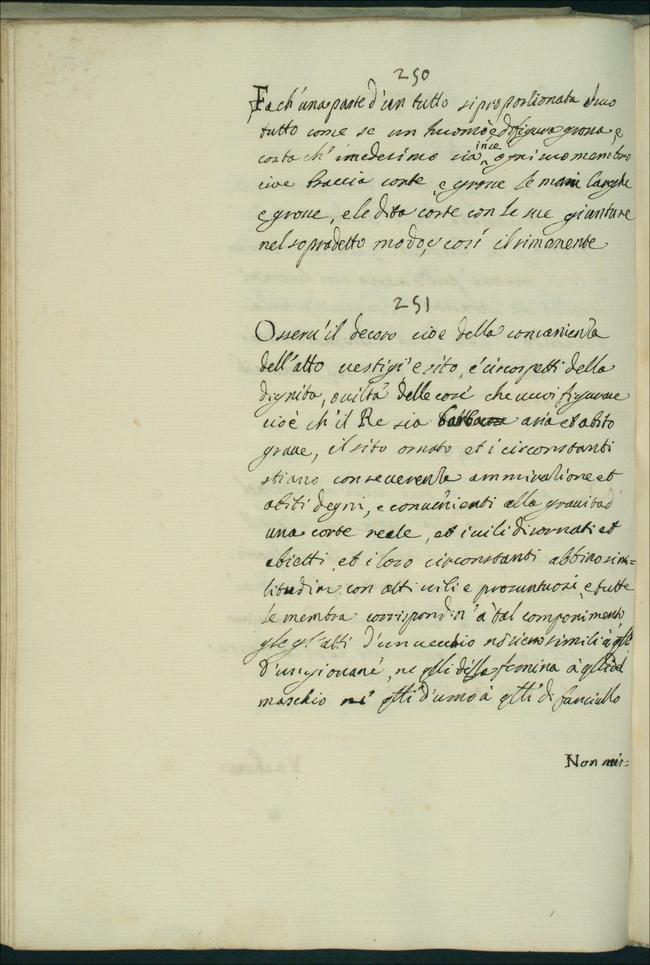 250
Fa ch'una parte d'un tutto si proportionata al suo
tutto come se un huomo è di figura grossa, e
corta ch'il medesimo sia in se ogni suo membro
cioe braccia corte, e grosse le mani larghe
e grosse, e le dita corte con le sue giunture
nel sopradetto modo, e cosi il rimanente
251
Osserva il decoro cioe della convenienza
dell'atto vestigi e sito, e circospetti della
dignita, o viltà delle cose che vuoi figurare
cioè ch'il Re sia aria et abito
graue, il sito ornato et i circonstanti
stiano con reverenza ammiratione et
abiti degni, e convenienti alla gravità d'
una corte reale, et i vili disornati et
abietti, et i loro circonstanti abbino simi=
litudine con atti vili e prosuntuosi, e tutte
le membra corrispondin' à tal componimento
gl'atti d'un vecchio non sieno simili à qlli
d'un giovane, ne qlli della femina à qlli del
maschio ne qlli d'uomo à qlli di fanciullo
Non mis=